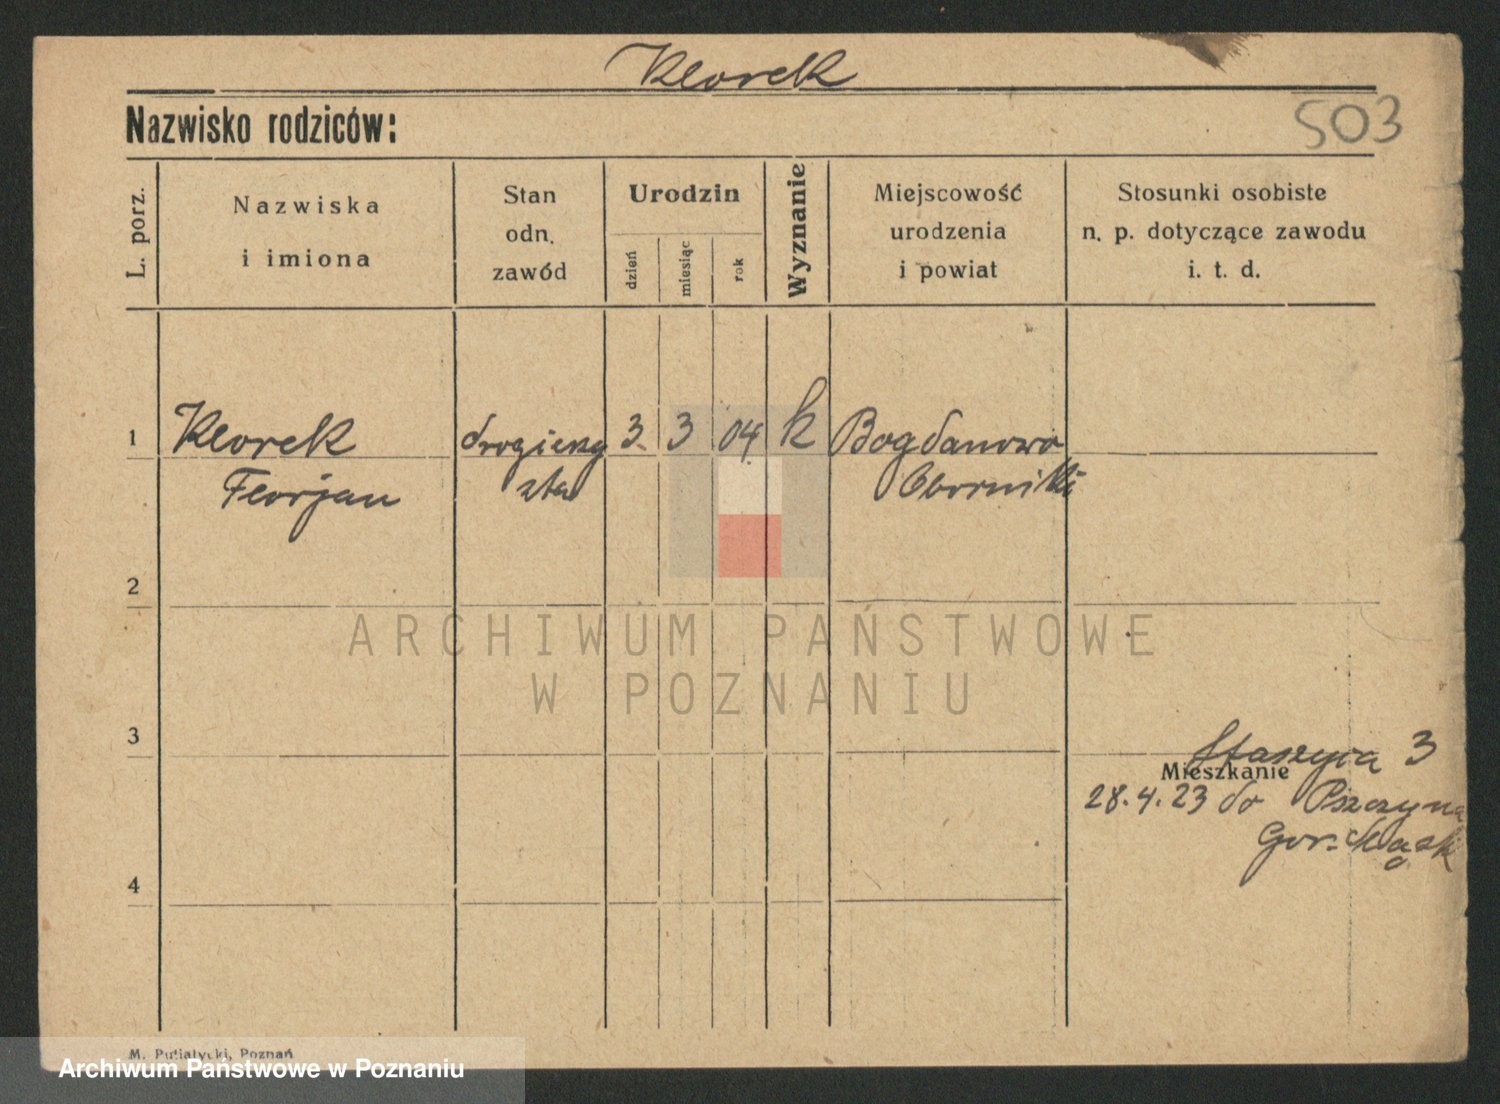 Klorek
Nazwisko rodziców:
503
L. porz.
Nazwiska
i imiona
Stan
odn.
zawód
Urodzin
dzień
miesiąc
rok
Wyznanie
Miejscowość
urodzenia
i powiat
Stosunki osobiste
n. p. dotyczące zawodu
i. t. d.
1 Klorek drogierzy 3. 3 04 k Bogdanowo
Florjan sta Oborniki
2
ARCHIWUM PAŃSTWOWE
W POZNANIU
3
Staszyca 3
Mieszkanie
28.4.23 do Pszczyna
Gor.
4
M. Putiatycki, Poznań
Archiwum Państwowe w Poznaniu